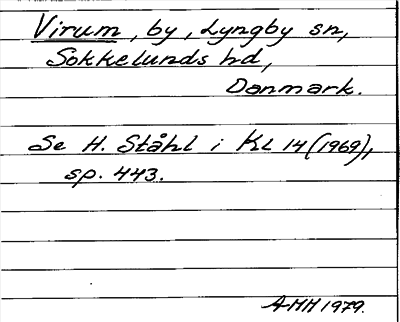 Virum, by, Lyngby sn,
Sokkelunds hd,
Danmark.
Se H. Ståhl i KL 14 (1969),
sp. 443.
AMH 1979.